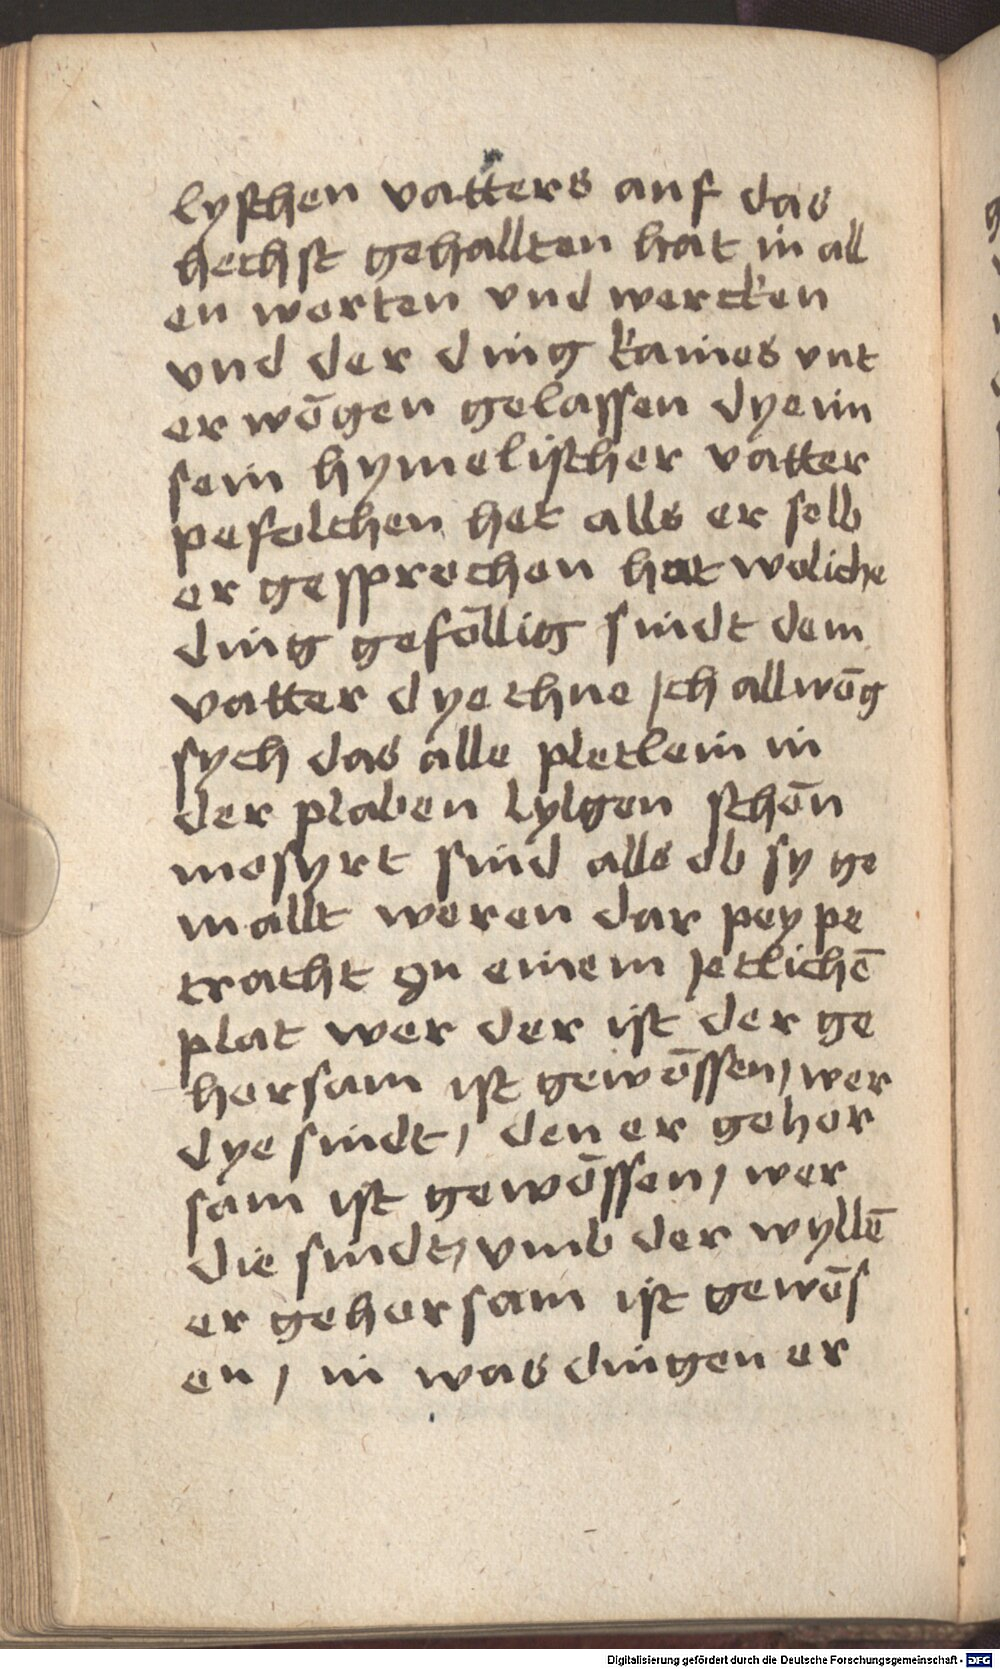 lyschen vatters auf das
hechst gehallten hat in all
en worten vnd wercken
vnd der ding kaines vnt
er wōgen gelassen dye im
sein hymelischer vatter
pefolchen het alls er selb
er gesprochen hat weliche
ding gefōllig sindt dem
vatter dye thue ich allwōg
sych das alle pletlein in
der plaben lylgen schōn
mosyrt sind alls ob sy ge
mallt weren dar pey pe
tracht zu einem jetlichē
plat wer der ist der ge
horsam ist gewōssen / wer
dye sindt / den er gehor
sam ist gewōssen / wer
die sindt / vmb der wyllē
er gehorsam ist gewōs
en / in was dingen er
Digitalisierung gefördert durch die Deutsche Forschungsgemeinschaft - DFG